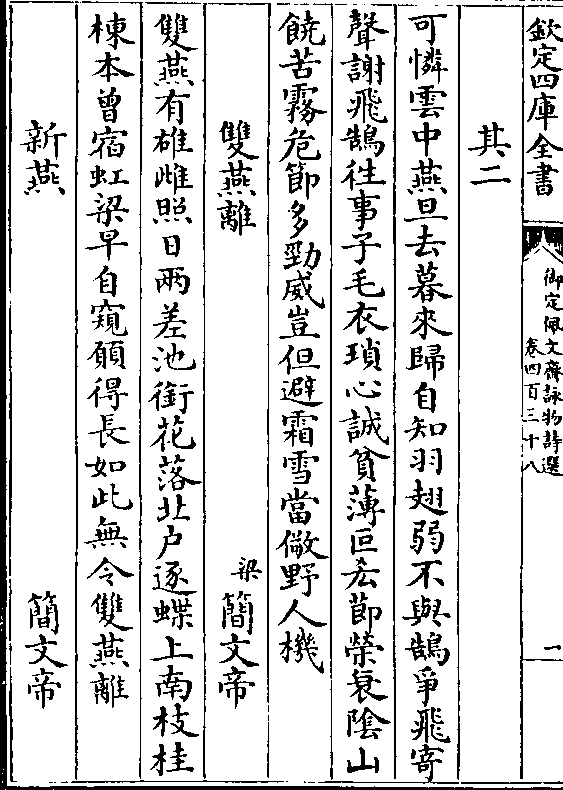 欽定四庫全書
御定佩文齋詠物詩選
卷四百三十八
一
其二
可憐雲中燕旦去暮來歸自知羽翅弱不與鵠爭飛寄
聲謝飛鵠徃事子毛衣瑣心誠貧薄叵忝節榮衰陰山
饒苦霧危節多勁威豈但避霜雪當儆野人機
雙燕離
梁簡文帝
雙燕有雄雌照日兩差池銜花落北户逐蝶上南枝桂
棟本曾宿虹梁早自窺願得長如此無令雙燕離
新燕
簡文帝